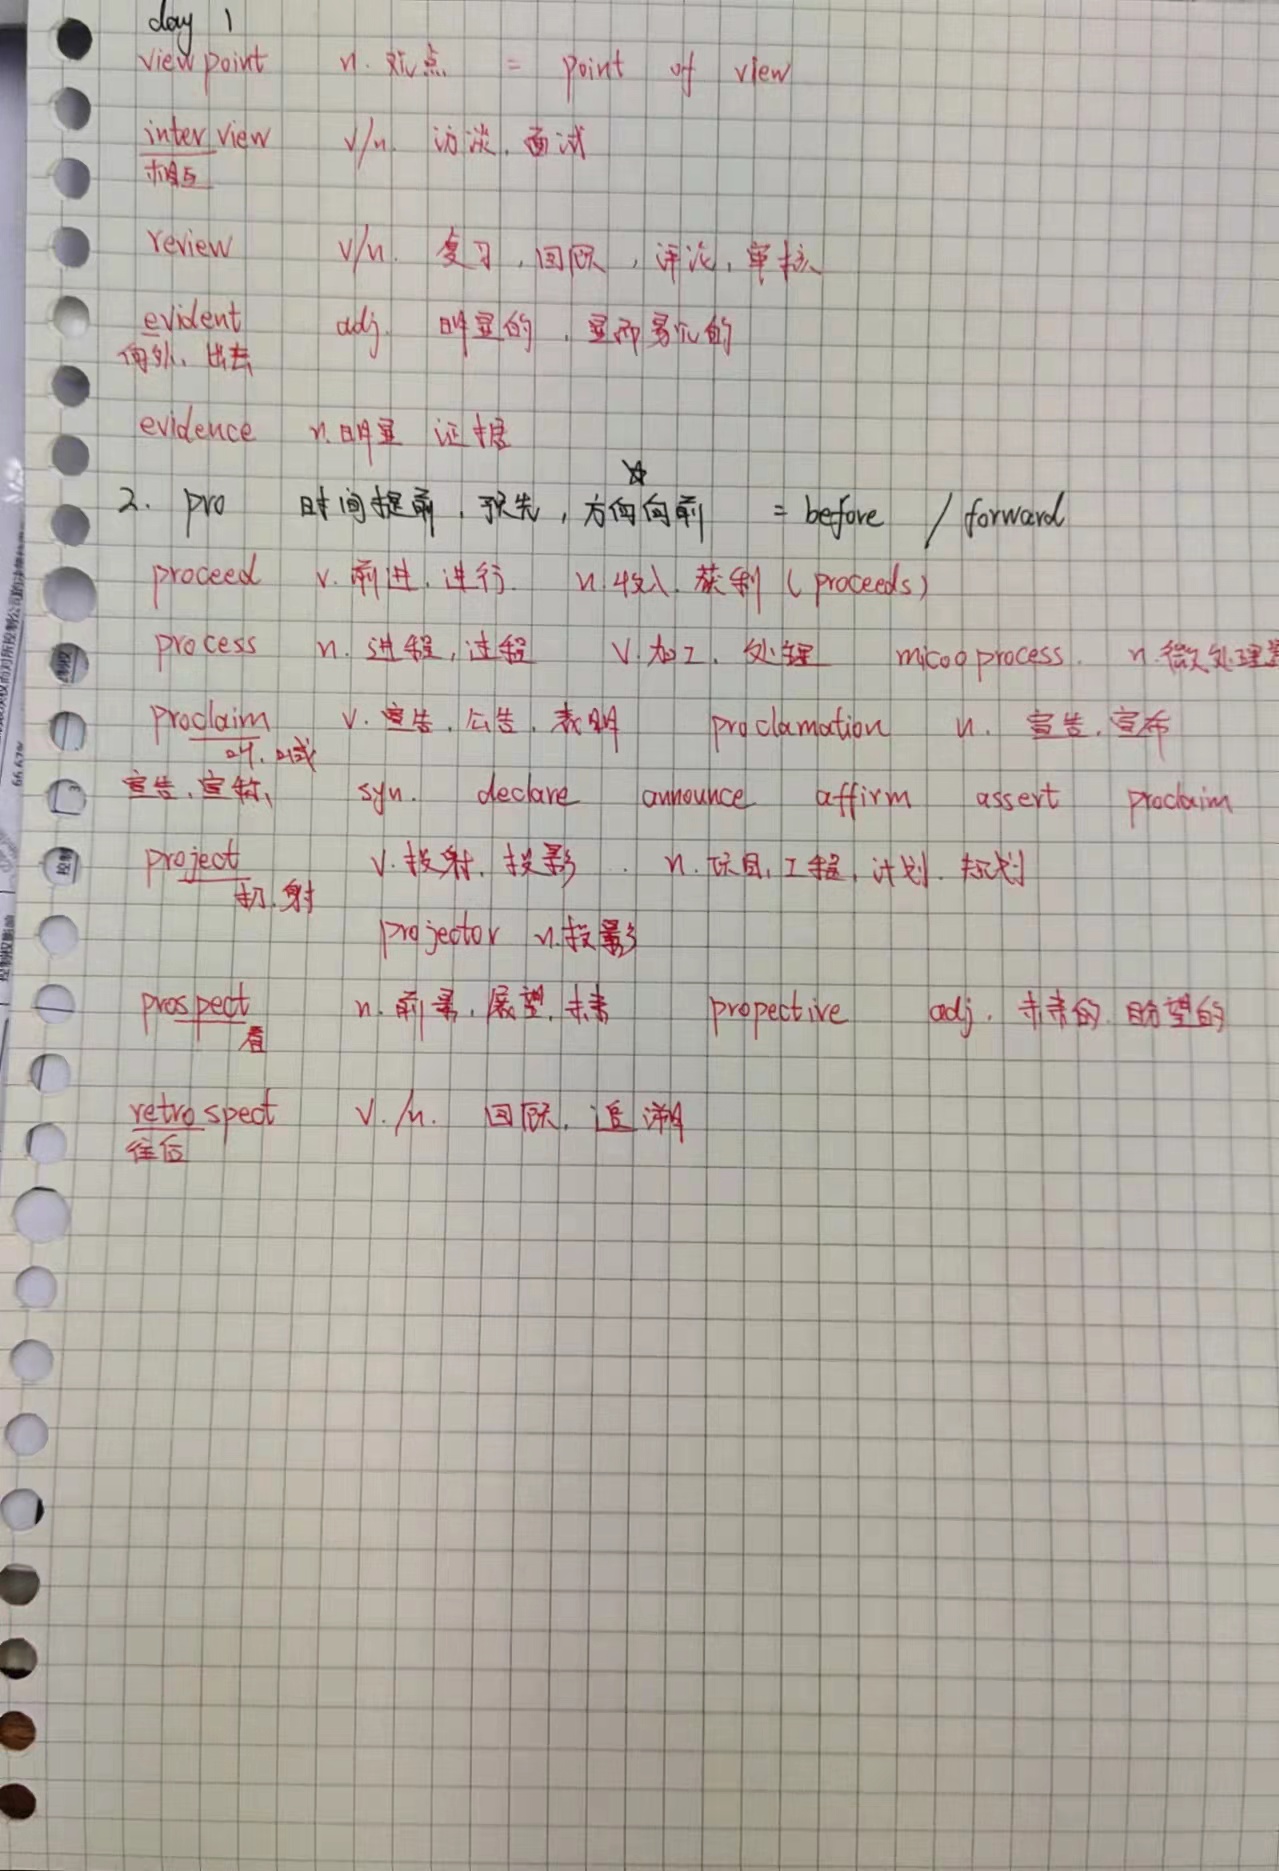 day 1
viewpoint n. 观点 = point of view
interview v/n. 访谈、面试
相互
review v/n. 复习，回顾，评论，审核
evident adj. 明显的，显而易见的
向外、出去
evidence n. 明显 证据
☆
2. pro 时间提前，预先，方向向前 = before / forward
proceed v. 前进，进行. n. 收入、获利 (proceeds)
process n. 进程，过程 v. 加工、处理 micooprocess. n. 微处理
proclaim v. 宣告，公告，表明 proclamation n. 宣告，宣布
叫、喊
宣告、宣称、 syn. declare announce affirm assert proclaim
project v. 投射，投影. n. 项目，工程，计划、规划
扔、射
projector n. 投影
prospect n. 前景，展望，未来 propective adj. 未来的、盼望的
看
retrospect v./n. 回顾，追溯
往后
控制
3
控制
66.67%